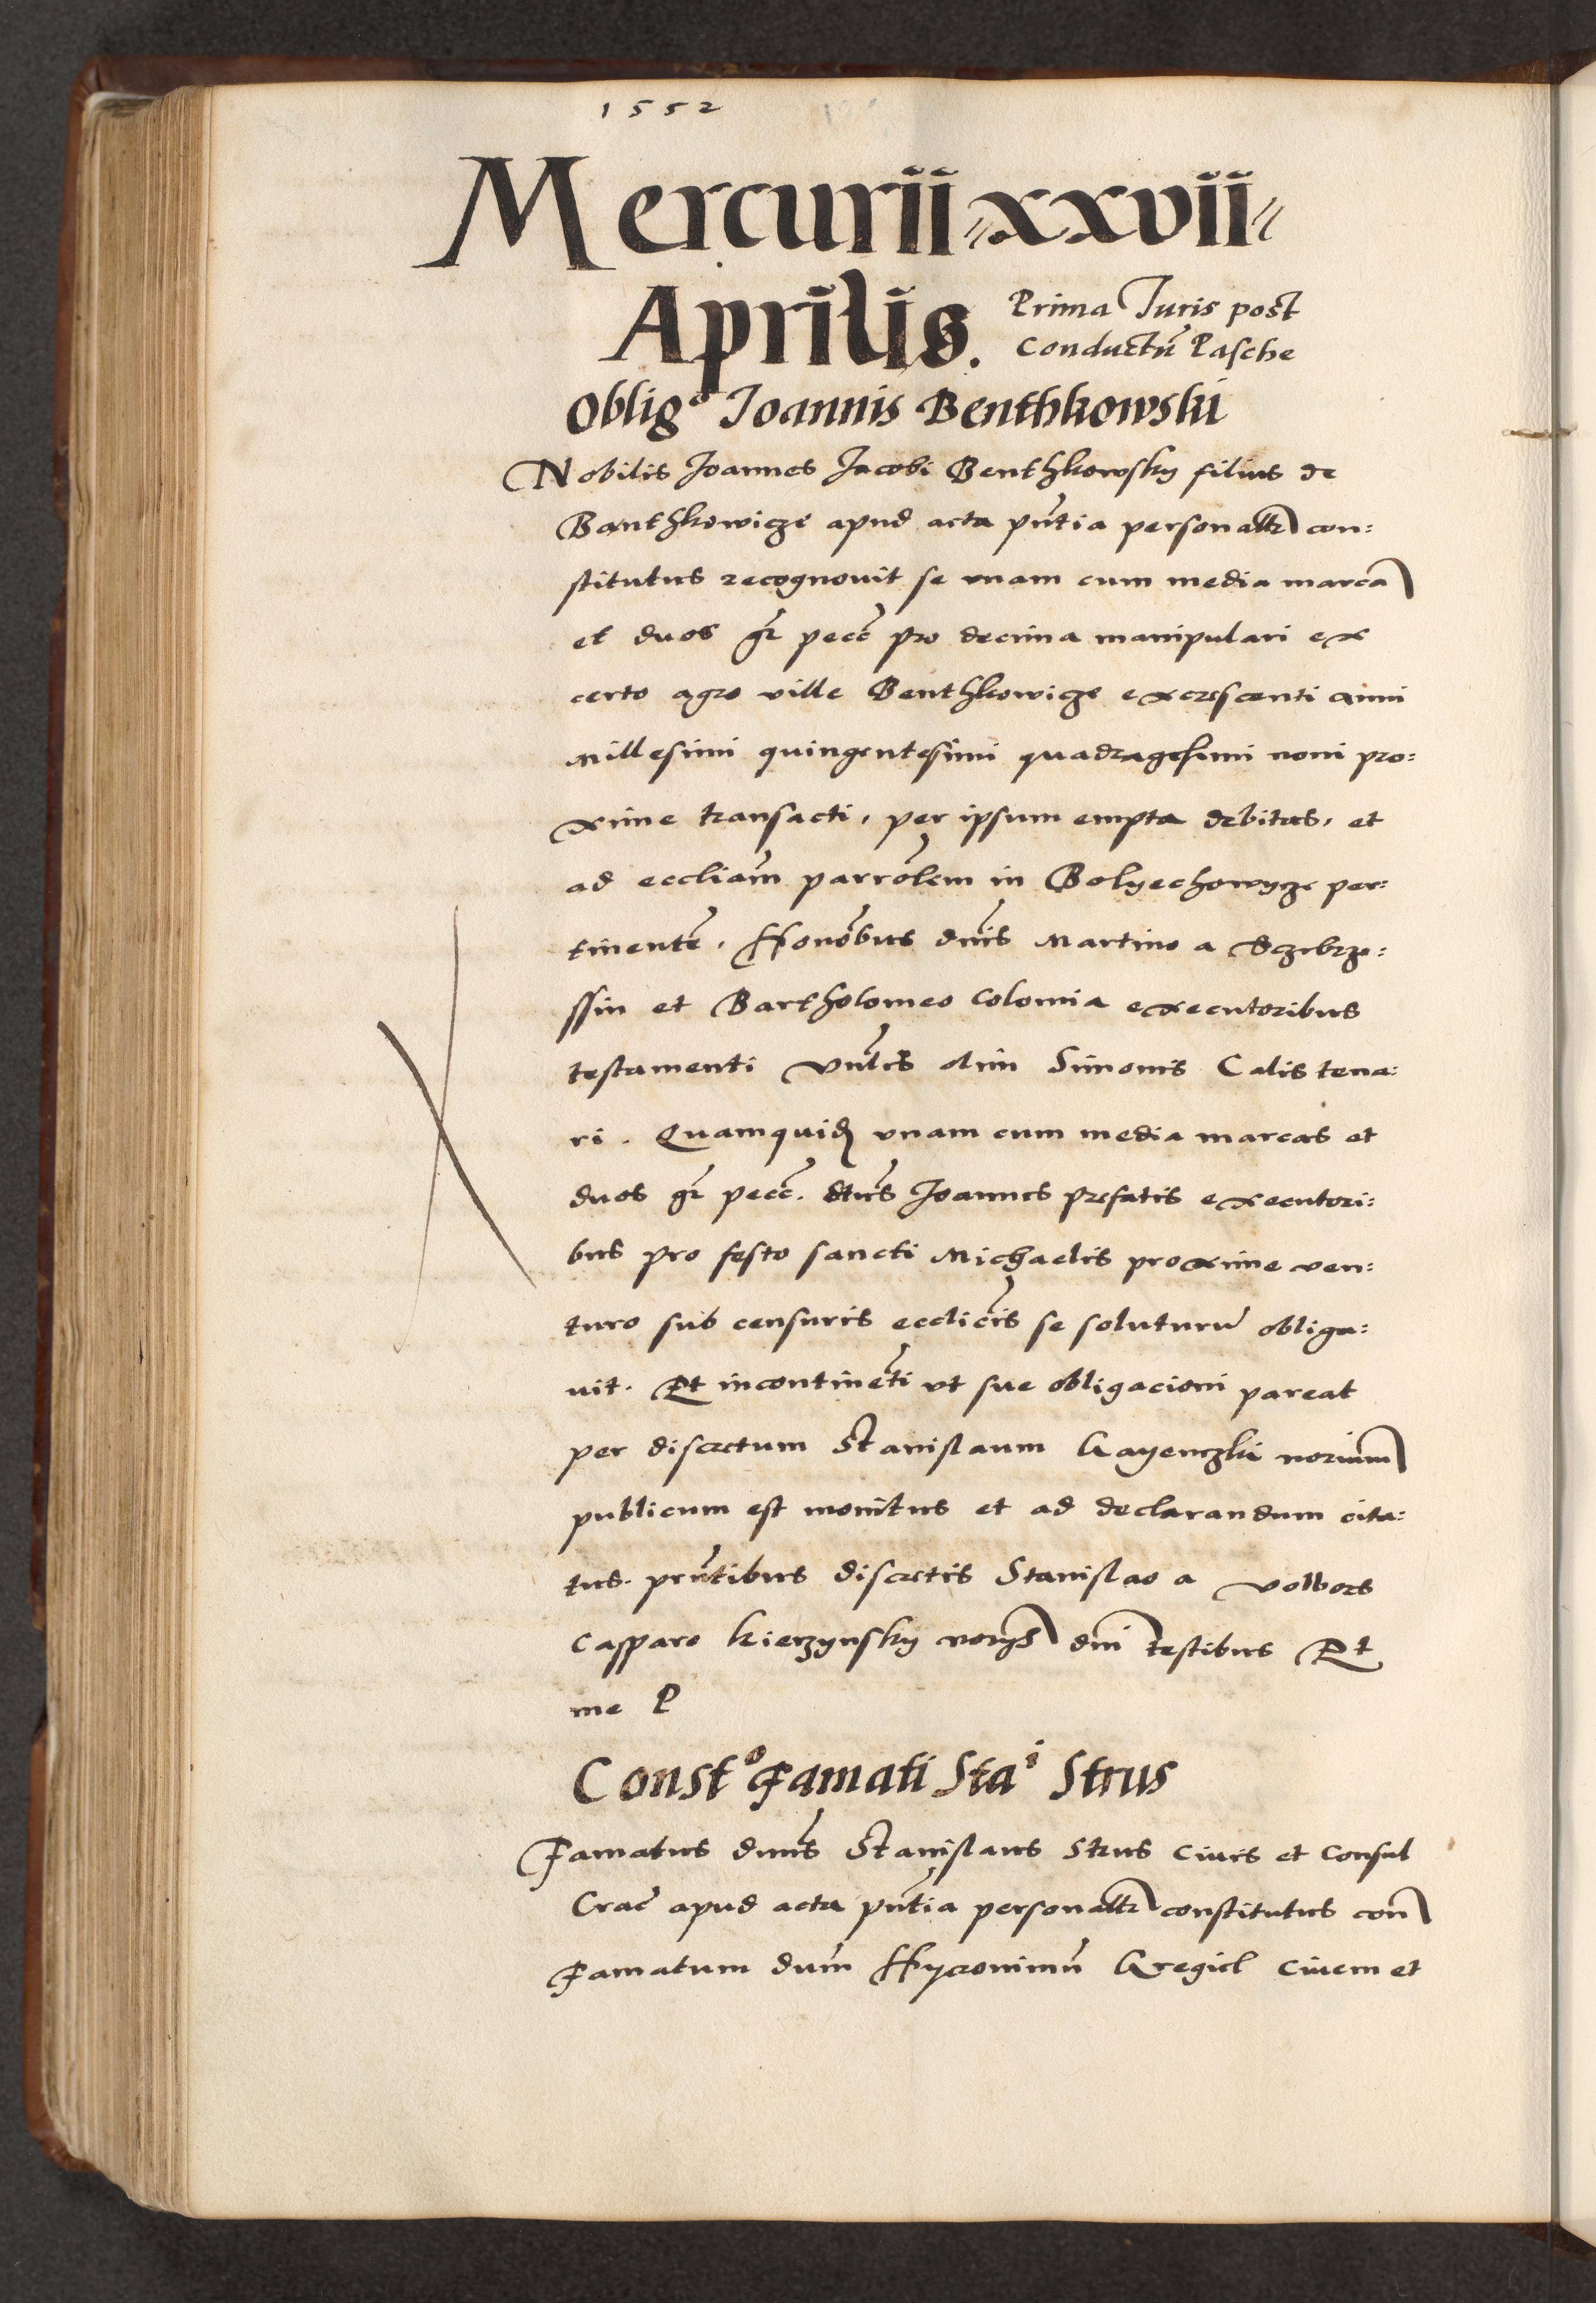 1552
Mercurii xxvii
Aprilis.
Prima Juris post
Conductũ Pasche
Oblig° Joannis Benthkowski
Nobilis Joannes Jacobi Benthkowsky filius de
Banthkowicze apud acta pñtia personaltr con:
stitutus recognovit se unam cum media marca
et duos gr pecc pro decima manipulari ex
certo agro ville Benthkowicze excrescenti anni
Millesimi quingentesimi quadragesimi noni pro:
xime transacti, per ipsum empta debitas, et
ad eccliam parrolem in Bolyechowycze per:
tinentẽ, Honobus dnis Martino a Sczebrze:
ssin et Bartholomeo Colomia executoribus
testamenti vnlis olim Simonis Calis tena:
ri. Quamquid unam cum media marcas et
duos gr pecc. dtus Joannes prefatis executori:
bus pro festo sancti Michaelis proxime ven:
turo sub censuris ecclicis se soluturũ obliga:
uit. Et incontinẽti ut sue obligacioni pareat
per discretum Stanislaum Gayenczki norium
publicum est monitus et ad declarandum cita:
tus. prñtibus discretis Stanislao a Volbors
Casparo Kierzynsky norys dni testibus Et
me P
Const° Famati Sta^i Strus
Famatus dnus Stanislaus Strus Civis et Consul
Crac apud acta pñtia personaltr constitutus con
Famatum dum Hyeronimũ Kregiel Civem et